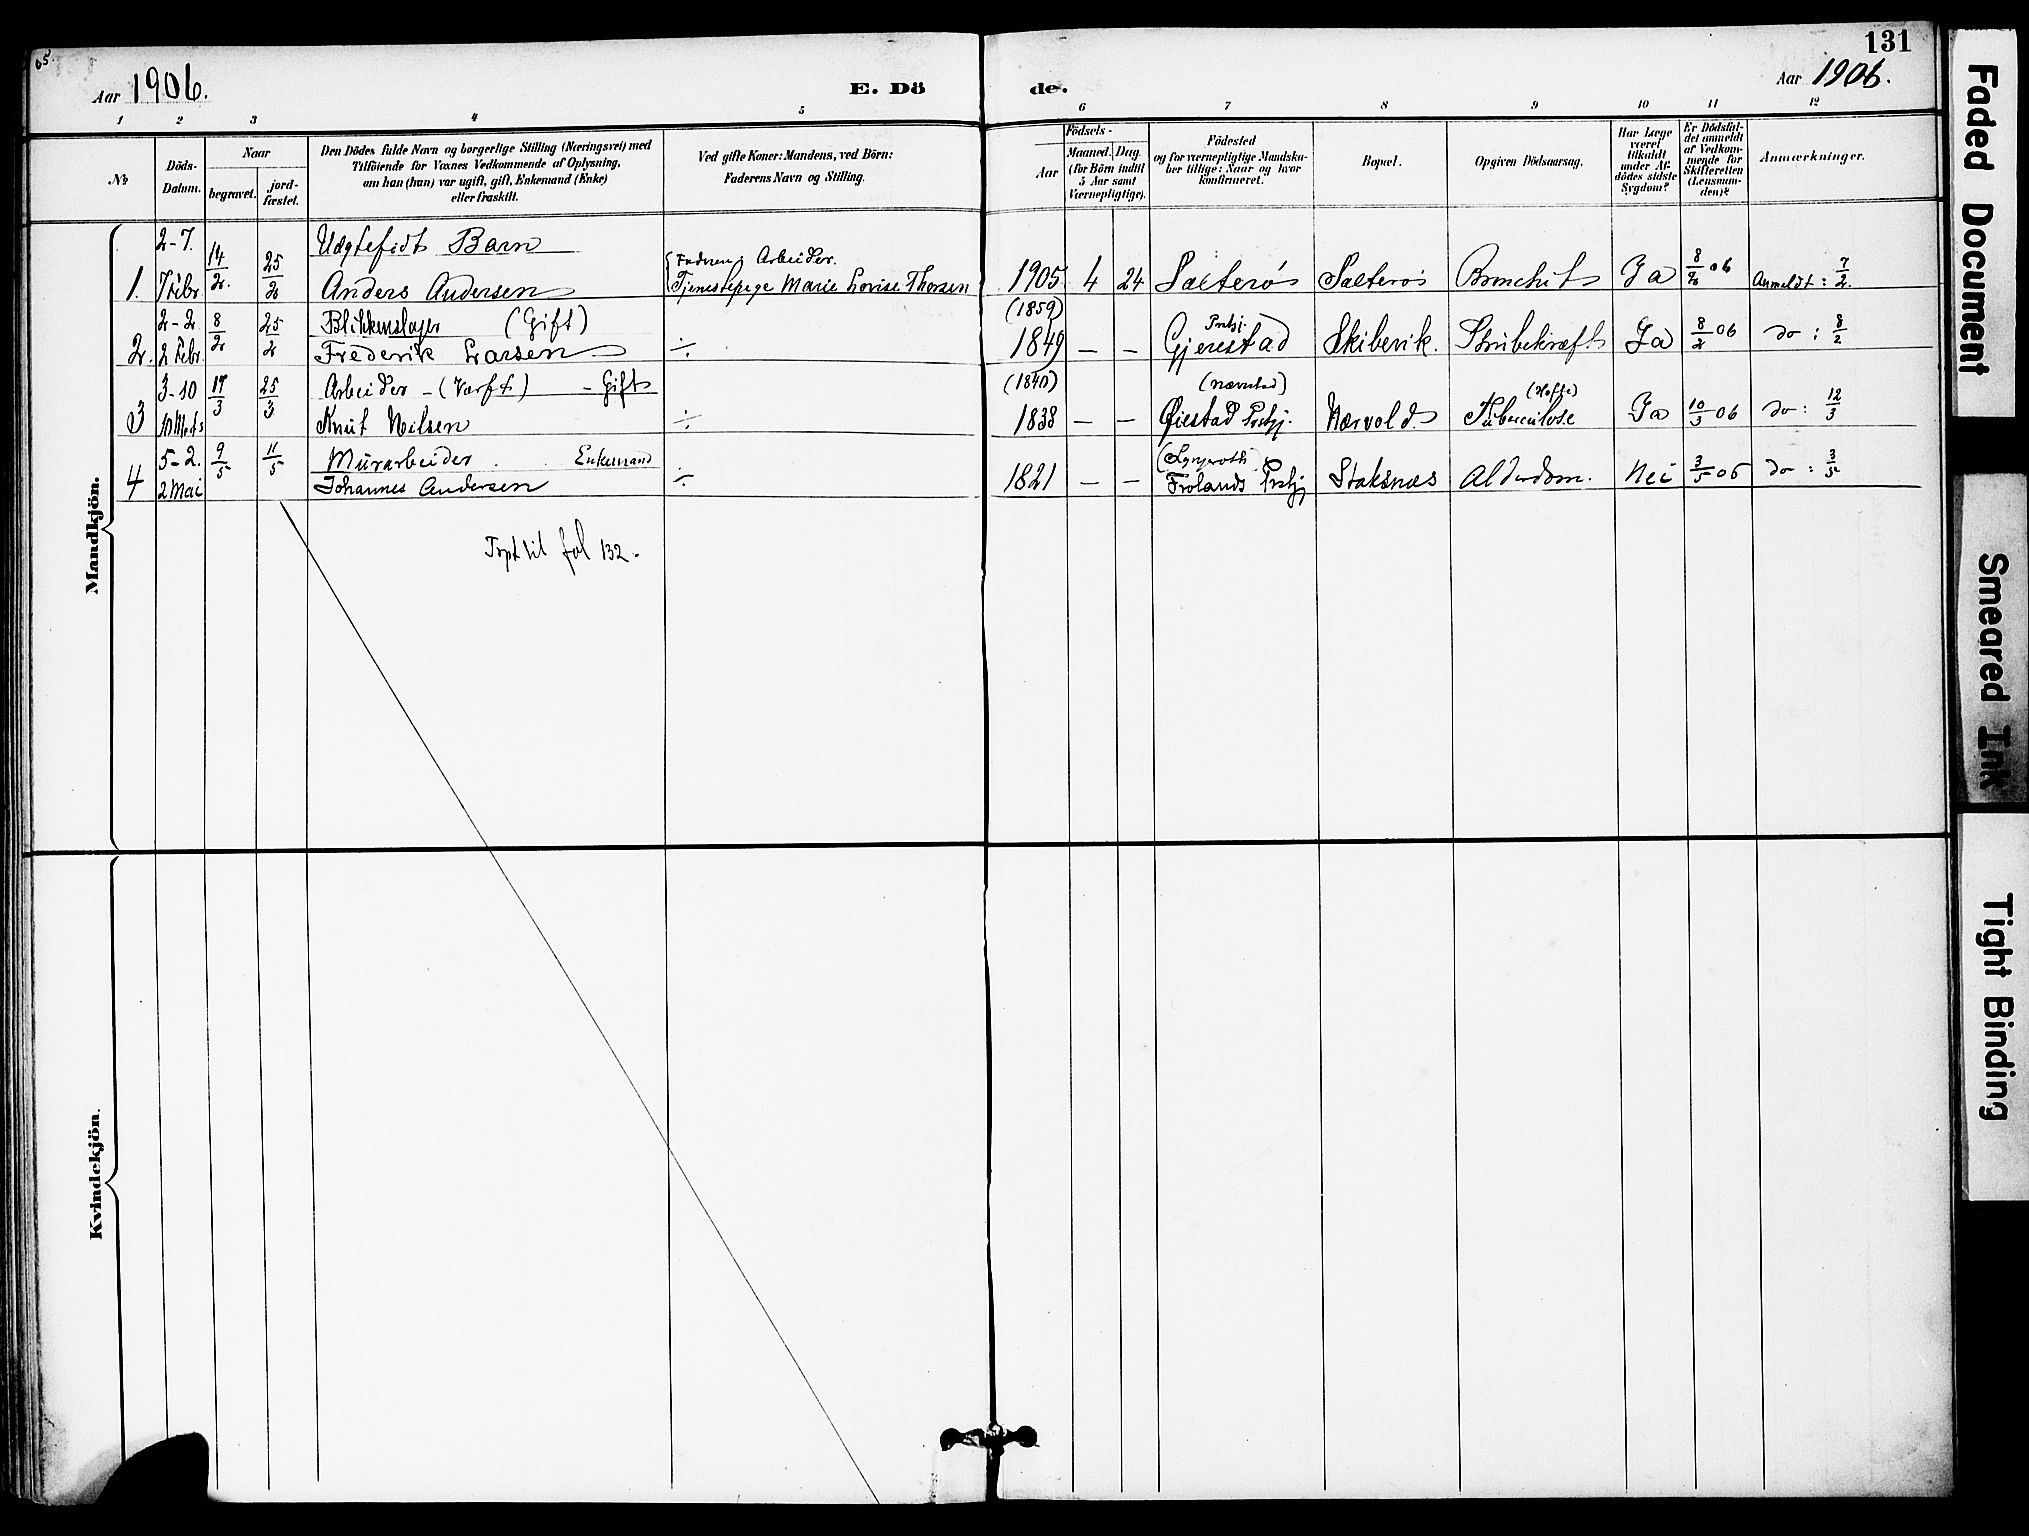 131
Aar 1906.
E. Dö
de.
Aar 1906.
1 2 3 4 5 6 7 8 9 10 11 12
№
Döds-
Datum.
Naar
begravet.
jord-
fæstet.
Den Dödes fulde Navn og borgerlige Stilling (Næringsvei) med
Tilföiende for Voxnes Vedkommende af Oplysning,
om han (hun) var ugift, gift, Enkemand (Enke)
eller fraskilt.
Ved gifte Koner: Mandens, ved Börn:
Faderens Navn og Stilling.
Födsels-
Aar
Maaned. Dag.
(for Börn indtil
5 Aar samt
Værnepligtige).
Födested
og for værnepligtige Mandska-
ber tillige: Naar og hvor
konfirmeret.
Bopæl.
Opgiven Dödsaarsag.
Har Læge
været
tilkaldt
under Af-
dödes sidste
Sygdom?
Er Dödsfal-
det anmeldt
af Vedkom-
mende for
Skifteretten
(Lensman-
den)?
Anmærkninger.
Mandkjön.
2-7. 14/2. 25/2 Uægtefödt Barn Faderen, Arbeider.
1. 7 Febr Anders Andersen Tjenestepige Marie Lovise Thorsen 1905 4 24 Sæterö Sæterö Bronchit Ja 8/2 06 Anmeldt: 7/2.
2-2 8/2 25/2 Blikkenslager (Gift) (1859) Prstgj.
2. 2 Febr. Frederik Larsen ÷ 1849 — — Gjerestad Skibevik. Ja 8/2 06 do: 8/2
3-10 17/3 25/3 Arbeider - (Værft) - Gift (1840) (Hofte)
3 10 Marts Knut Nilsen ÷ 1838 — — Øiestad Prstgj. Nærvold Tuberculose Ja 10/3 06 do: 12/3
5-2. 9/5 11/5 Murarbeider Enkemand
4 2 Mai Johannes Andersen ÷ 1821 — — Frolands Prstgj Staksnæs Alderdom. Nei 3/5 06 do: 3/5
fol 132.
Kvindekjön.
Faded Document
Smeared Ink
Tight Binding